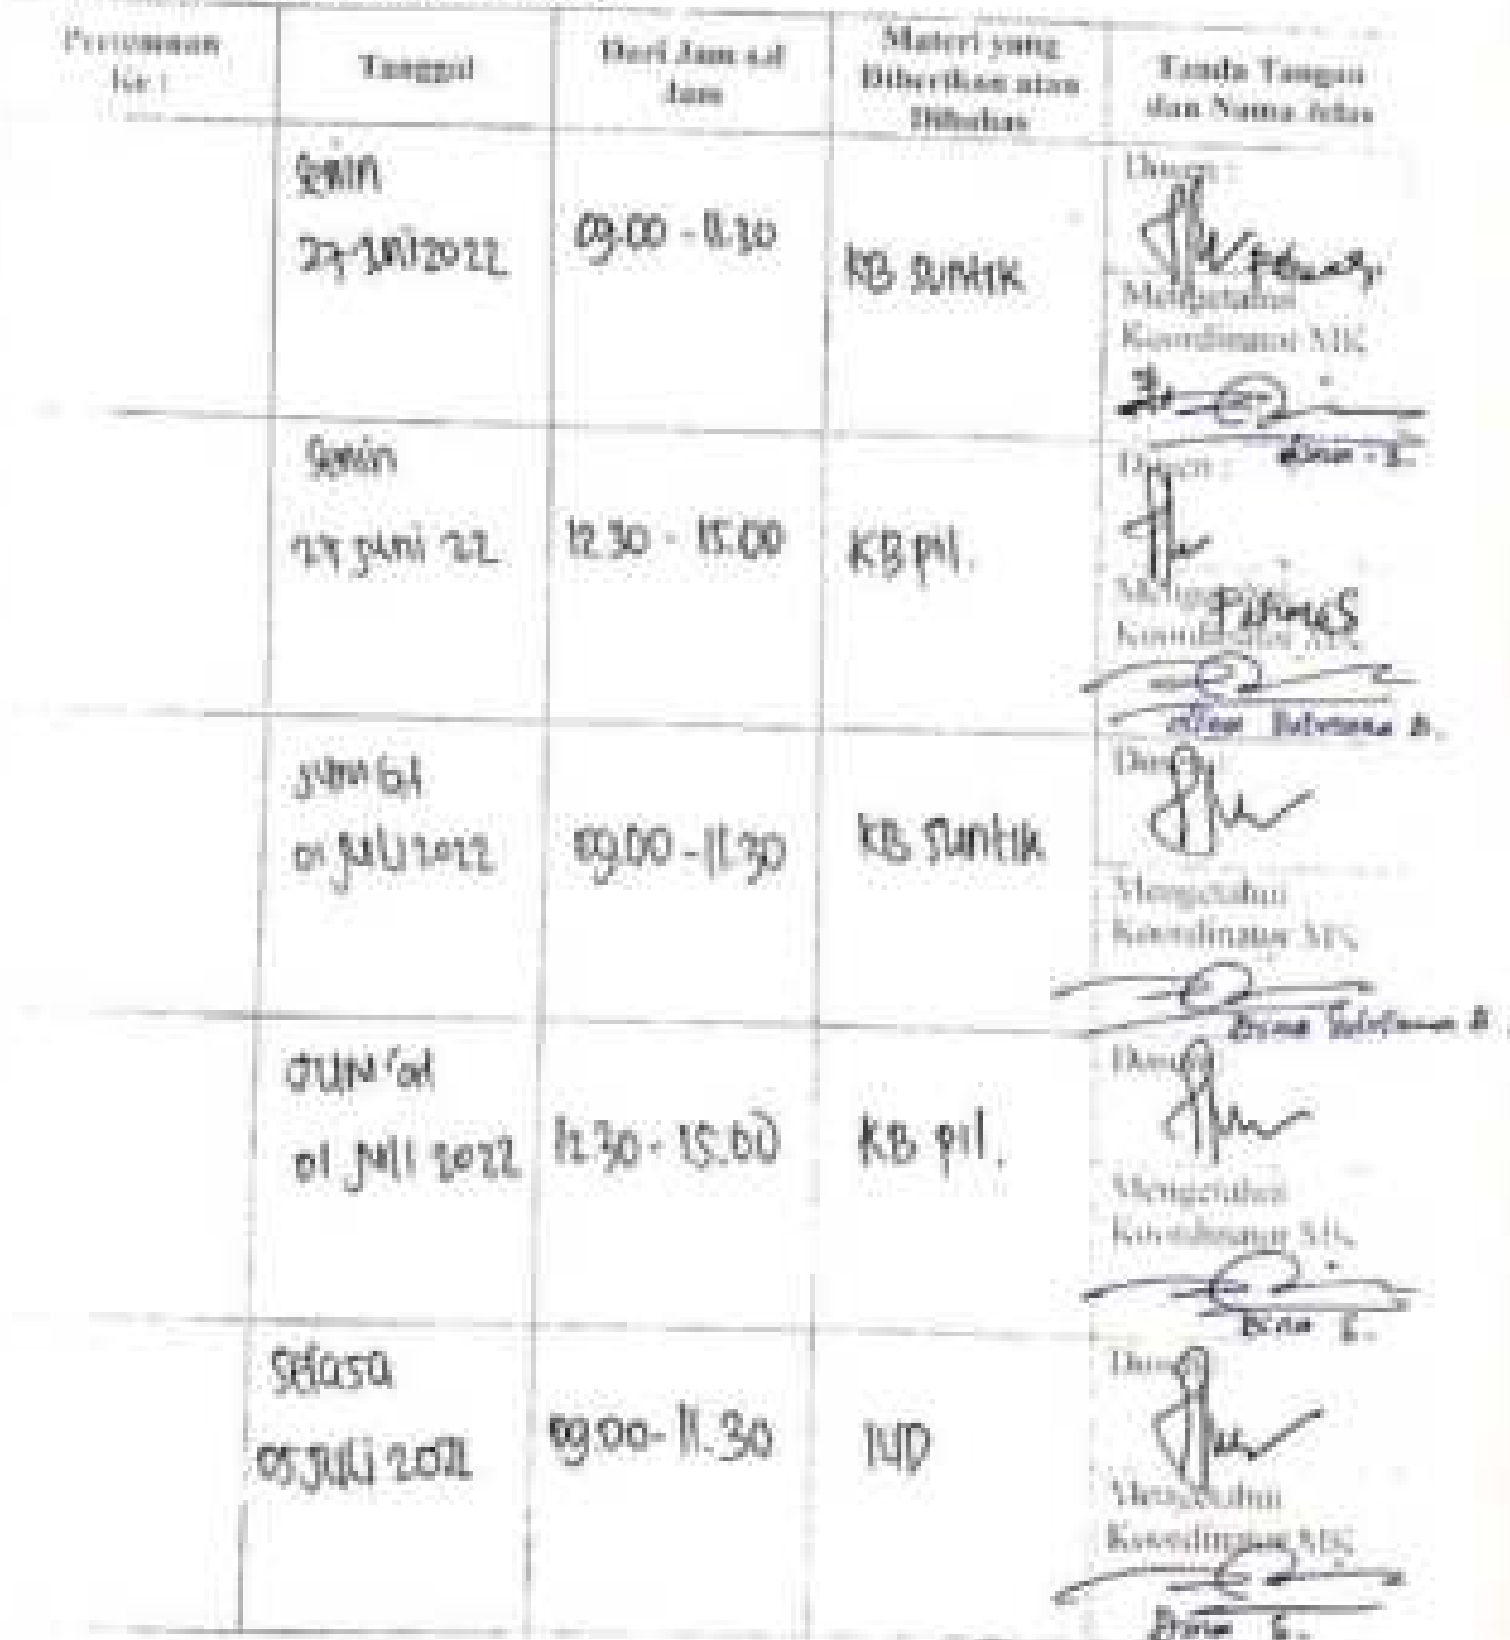 Pertemuan
Ke :
Tanggal
Dari Jam s.d
Jam
Materi yang
Diberikan atau
Dibahas
Tanda Tangan
dan Nama Jelas
Senin
27 Juni 2022
09.00 - 11.30
KB suntik
Dosen :
Mengetahui
Koordinator MK
Senin
27 Juni 22
12.30 - 15.00
KB pil.
Dosen :
Mengetahui
Koordinator MK
Jum'at
01 Juli 2022
09.00 - 11.30
KB Suntik
Dosen
Mengetahui
Koordinator MK
Jum'at
01 Juli 2022
12.30 - 15.00
KB pil.
Dosen
Mengetahui
Koordinator MK
Dina
Selasa
05 Juli 2022
09.00 - 11.30
IUD
Dosen
Mengetahui
Koordinator MK